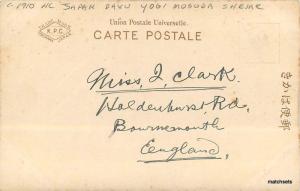 C 1910 HC JAPAN DAKU YOGI MOSUDA SHRINE
K.P.C.
Union Postale Universelle.
CARTE POSTALE
きかは便郵
Miss, J, Clark.
Holdenhurst, Rd,
Bournemouth,
Eengland,
matchsets